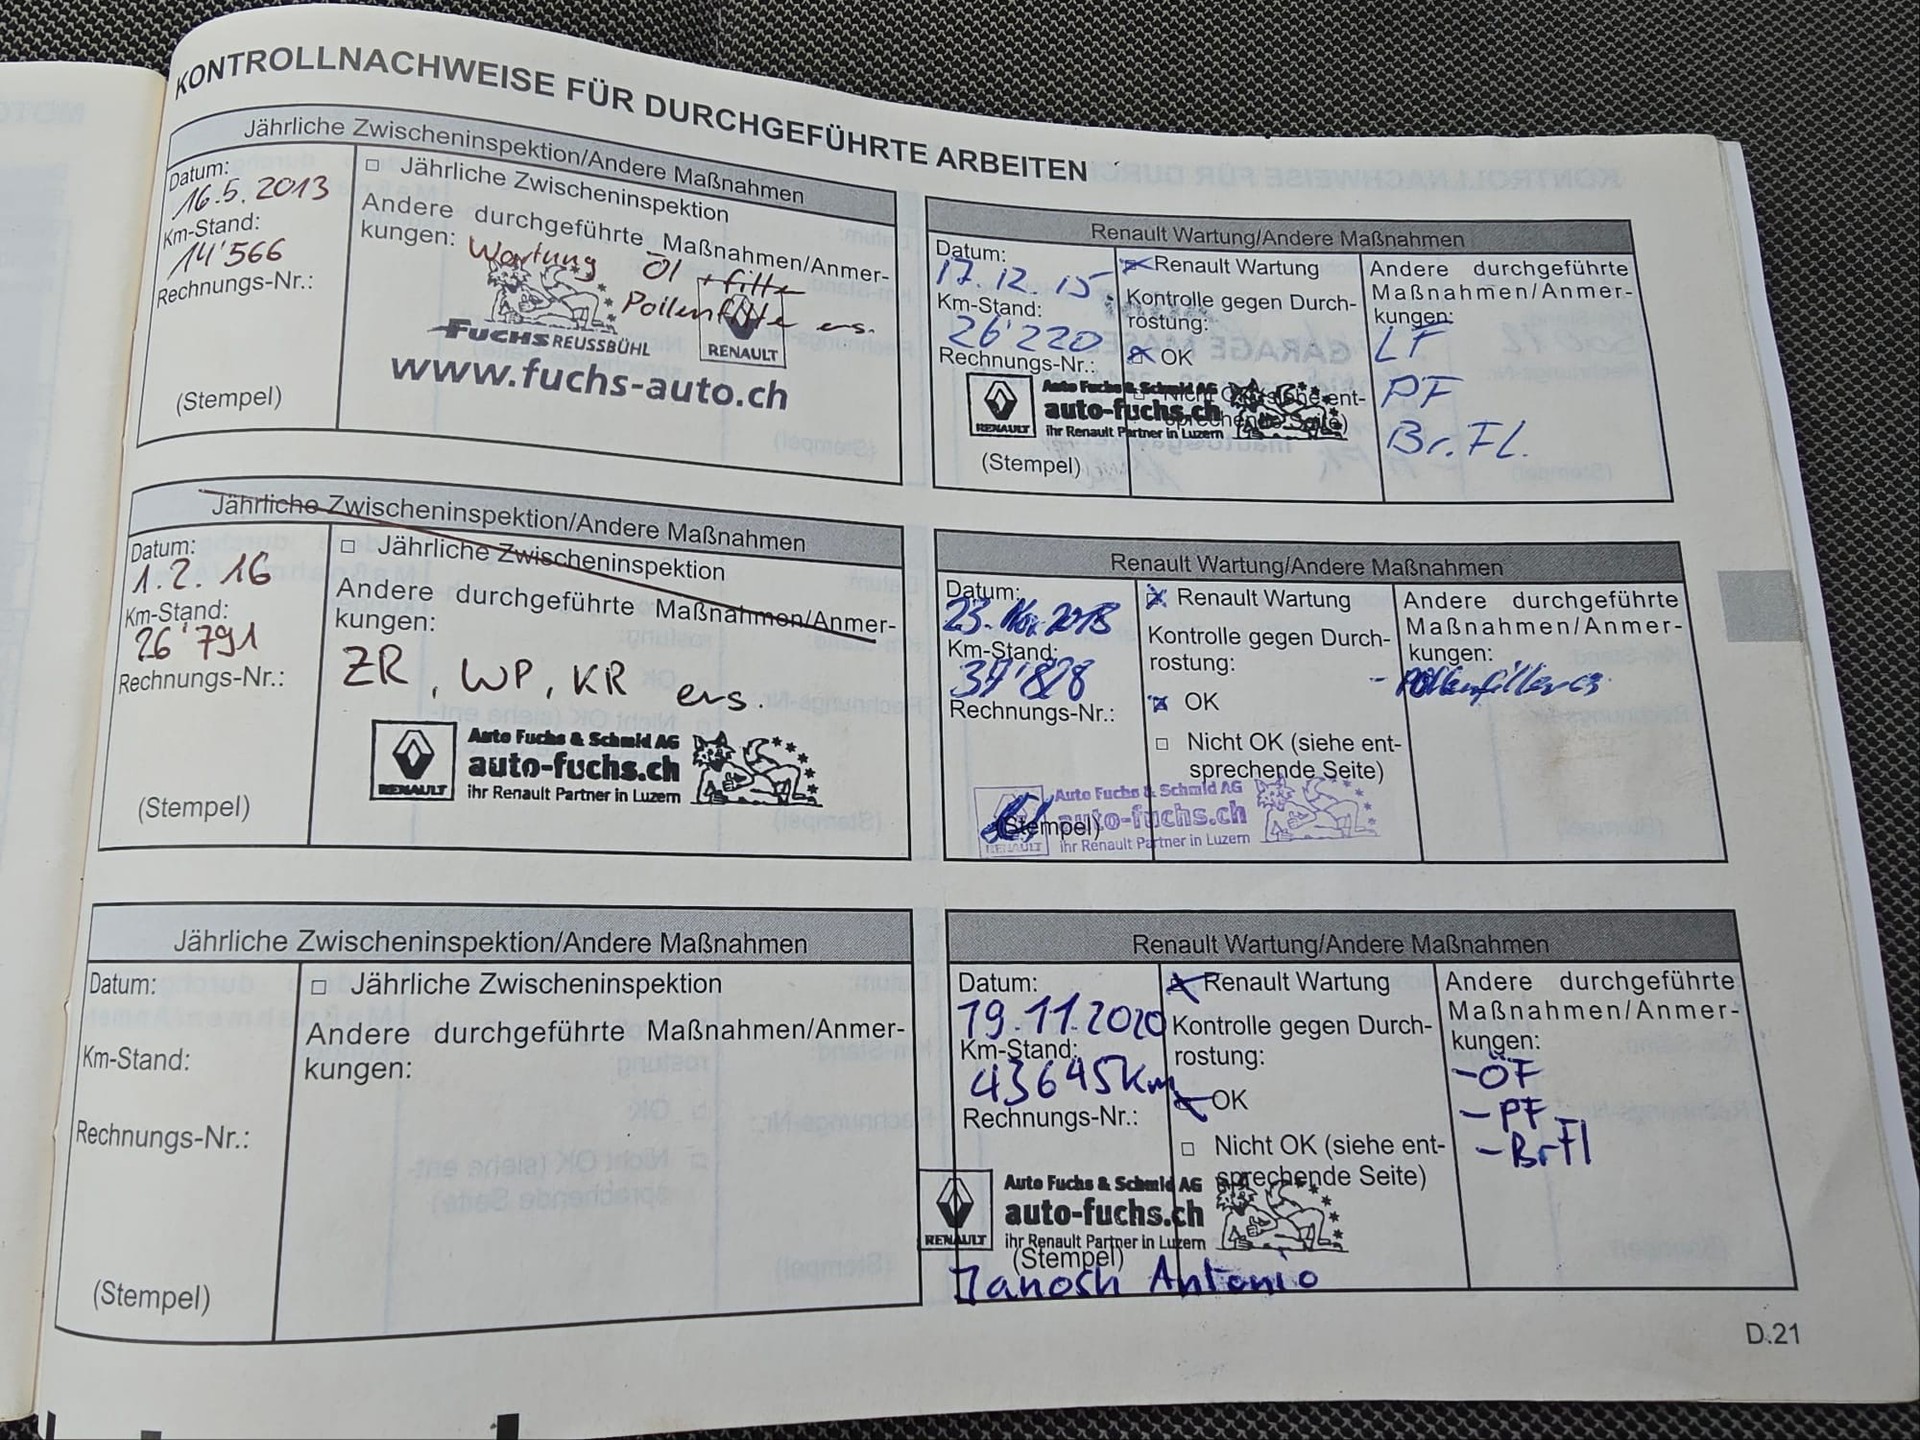 KONTROLLNACHWEISE FÜR DURCHGEFÜHRTE ARBEITEN
Jährliche Zwischeninspektion/Andere Maßnahmen
Datum:
16.5.2013
Km-Stand:
14'566
Rechnungs-Nr.:
(Stempel)
□ Jährliche Zwischeninspektion
Andere durchgeführte Maßnahmen/Anmer-
kungen: Wartung Öl + filter
Pollenfilter ers.
FUCHS REUSSBÜHL
RENAULT
www.fuchs-auto.ch
Renault Wartung/Andere Maßnahmen
Datum:
17.12.15
Km-Stand:
26'220
Rechnungs-Nr.:
Renault Wartung
Kontrolle gegen Durch-
rostung:
OK
□ Nicht OK (siehe ent-
sprechende Seite)
Andere durchgeführte
Maßnahmen/Anmer-
kungen:
LF
PF
Br.FL.
RENAULT
Auto Fuchs & Schmid AG
auto-fuchs.ch
ihr Renault Partner in Luzern
(Stempel)
Jährliche Zwischeninspektion/Andere Maßnahmen
Datum:
1.2.16
Km-Stand:
26'791
Rechnungs-Nr.:
(Stempel)
□ Jährliche Zwischeninspektion
Andere durchgeführte Maßnahmen/Anmer-
kungen:
ZR, WP, KR ers.
RENAULT
Auto Fuchs & Schmid AG
auto-fuchs.ch
ihr Renault Partner in Luzern
Renault Wartung/Andere Maßnahmen
Datum:
23. Nov. 2018
Km-Stand:
Rechnungs-Nr.:
Renault Wartung
Kontrolle gegen Durch-
rostung:
OK
□ Nicht OK (siehe ent-
sprechende Seite)
Andere durchgeführte
Maßnahmen/Anmer-
kungen:
- Pollenfilter
RENAULT
Auto Fuchs & Schmid AG
auto-fuchs.ch
ihr Renault Partner in Luzern
(Stempel)
Jährliche Zwischeninspektion/Andere Maßnahmen
Datum:
Km-Stand:
Rechnungs-Nr.:
(Stempel)
□ Jährliche Zwischeninspektion
Andere durchgeführte Maßnahmen/Anmer-
kungen:
Renault Wartung/Andere Maßnahmen
Datum:
19.11.2020
Km-Stand:
43645km
Rechnungs-Nr.:
Renault Wartung
Kontrolle gegen Durch-
rostung:
OK
□ Nicht OK (siehe ent-
sprechende Seite)
Andere durchgeführte
Maßnahmen/Anmer-
kungen:
- ÖF
- PF
- BrFl
RENAULT
Auto Fuchs & Schmid AG
auto-fuchs.ch
ihr Renault Partner in Luzern
(Stempel)
Janosh Antonio
D.21